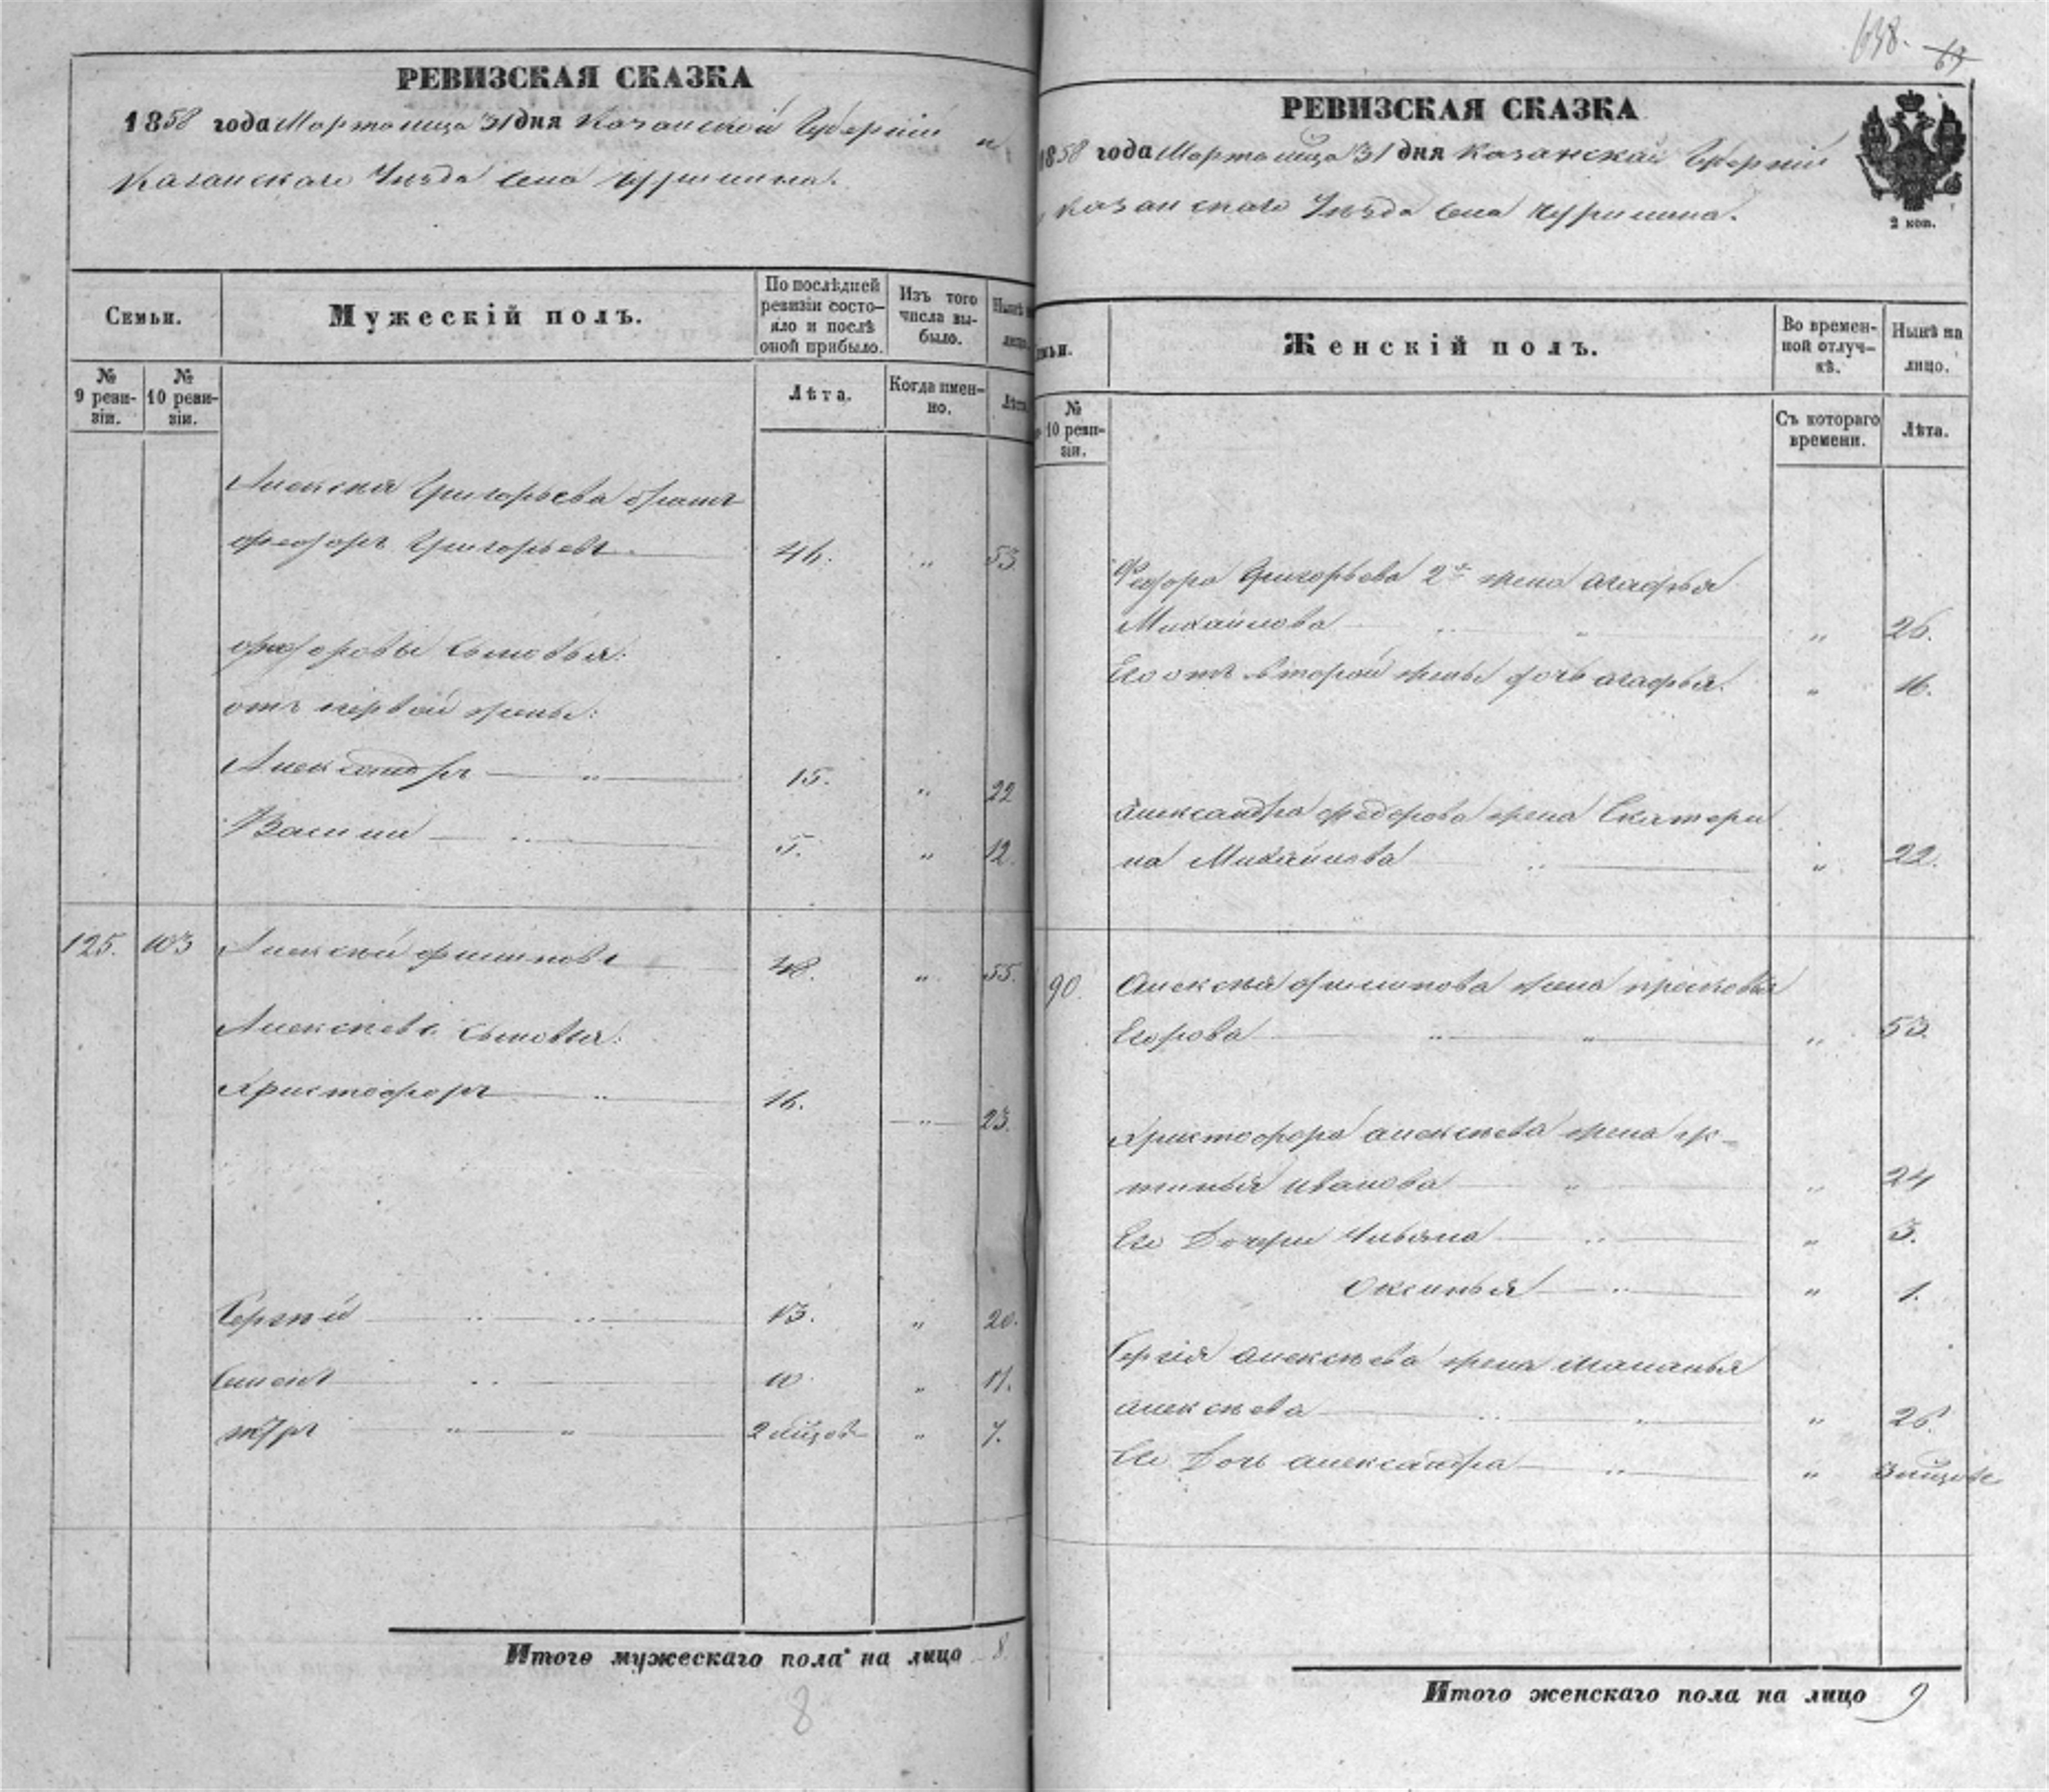 РЕВИЗСКАЯ СКАЗКА
1858 года Марта месяца 31 дня Казанской Губернии и
Казанскаго Уезда Села Чурилина.
Семьи.
Мужескій полъ.
По послѣдней ревизіи состо-
яло и послѣ
оной прибыло.
Изъ того
числа вы-
было.
Нынѣ на
лицо.
№
9 реви-
зіи.
№
10 реви-
зіи.
Лѣта.
Когда имен-
но.
Лѣта
Алексея Григорьева братъ
Федоръ Григорьевъ 46. " 53.
Федоровы сыновья:
отъ первой жены:
Александръ " 15. " 22
Василий " 5. " 12.
125. 103 Алексей Филиповъ 48. " 55.
Алексеева сыновья:
Христофоръ " 16. " 23.
Сергей " " 13. " 20.
Семенъ " 10. " 17.
Петръ " " 2 " 7.
Итого мужескаго пола на лицо 8.
8
638. 67
РЕВИЗСКАЯ СКАЗКА
1858 года Марта месяца 31 дня Казанской Губернии
Казанскаго Уезда Села Чурилина.
2 коп.
Женскій полъ.
Во времен-
ной отлуч-
кѣ.
Нынѣ на
лицо.
№
10 реви-
зіи.
Съ котораго
времени.
Лѣта.
Федора Григорьева 2я жена Агафья
Михайлова " " 26.
Его отъ второй жены дочь Агафья. " 16.
Александра Федорова жена Екатери
на Михайлова " " 22.
90. Алексея Филипова жена Прасковья
Егорова " " " 53.
Христофора Алексеева жена Ус-
тинья Иванова " " 24
Его Дочери Ульяна " " 3.
Оксинья " " 1.
Сергия Алексеева жена Маланья
Алексеева " " " 26.
Его Дочь Александра " " 3
Итого женскаго пола на лицо 9